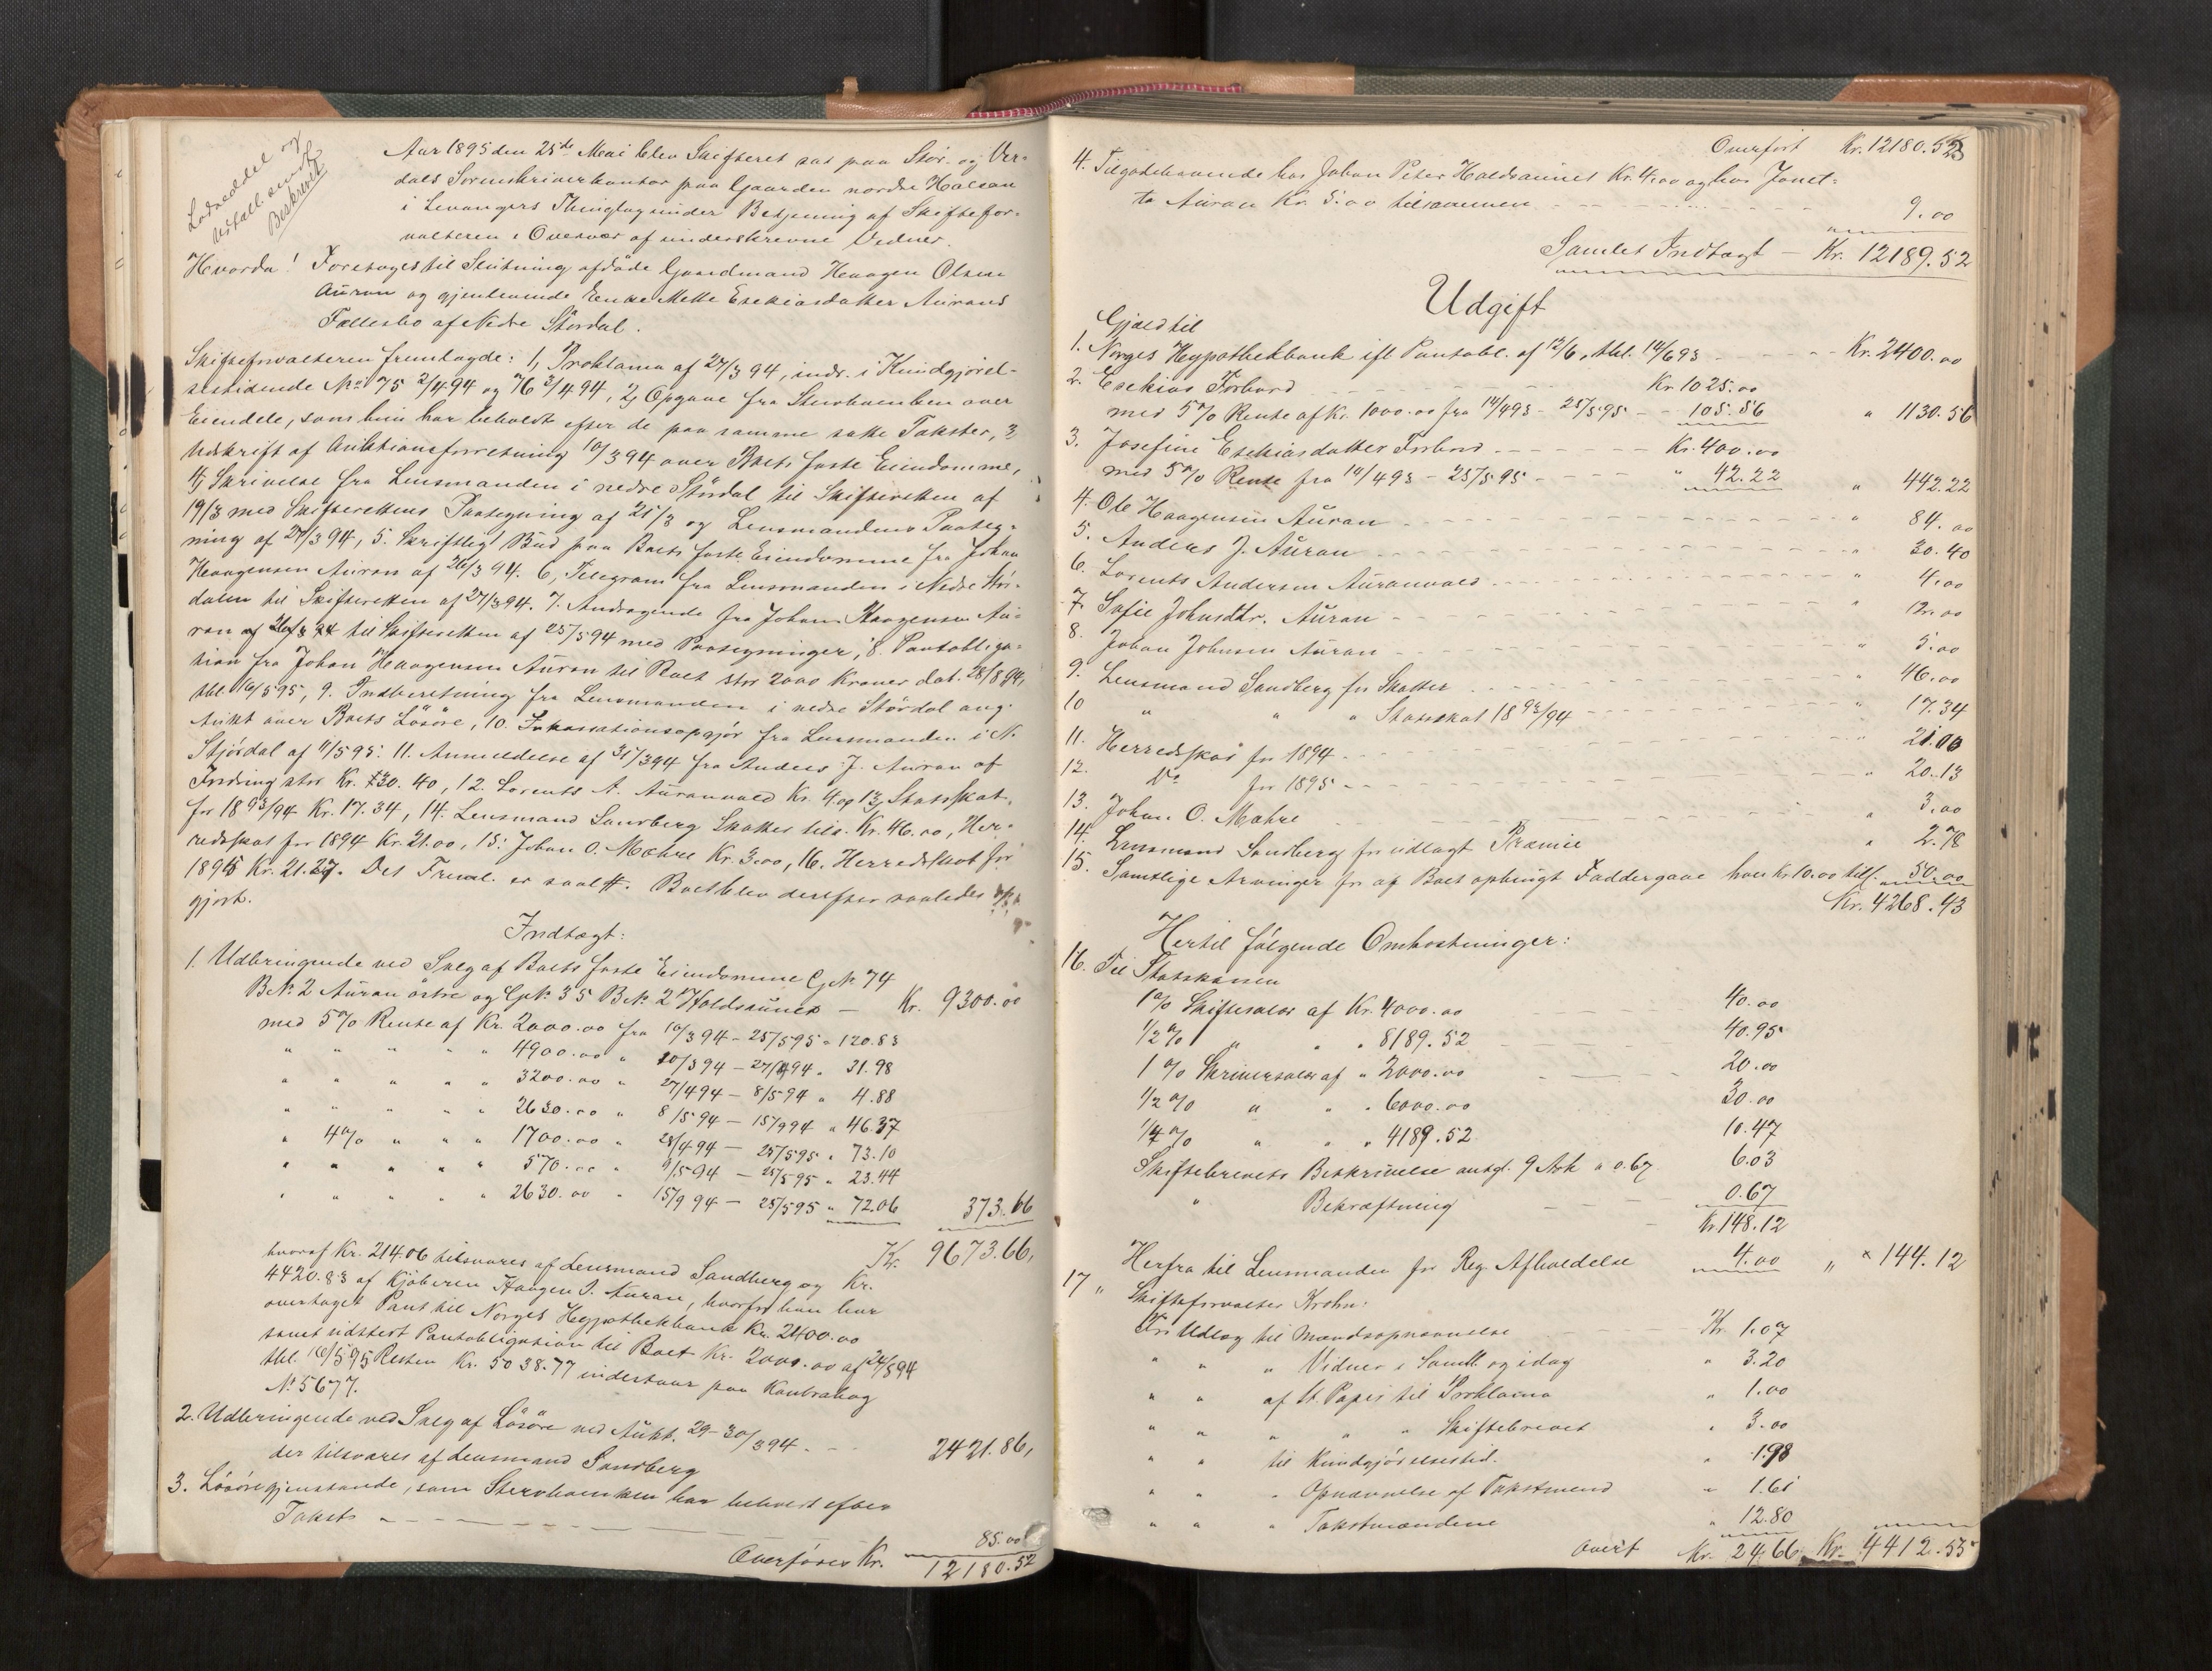 Lodseddel og
Udtall. sendt
Beskrevet
Aar 1895 den 25de Mai blev Skifteret sat paa Stør- og Ver-
dals Sorenskriverkontor paa Gaarden nordre Halsan
i Levangers Thinglag under Betjening af Skiftefor-
valteren i Overvær af underskrevne Vidner.
Hvorda! Foretoges til Slutning afdøde Gaardmand Haagen Olsen
Auran og gjenlevende Enke Mette Esekiasdatter Aurans
Fællesbo af Nedre Størdal.
Skifteforvalteren fremlagde: 1, Proklama af 27/3 94, indr. i Kundgjørel-
sestidende No 75 2/4 94 og 76 3/4 94, 2, Opgave fra Stervboenken over
Eiendele, som hun har beholdt efter de paa samme satte Takster, 3
Udskrift af Auktionsforretning 10/3 94 over Boets faste Eiendomme,
4, Skrivelse fra Lensmanden i nedre Størdal til Skifteretten af
19/3 med Skifterettens Paategning af 21/3 og Lensmandens Paateg-
ning af 27/3 94, 5. Skriftligt Bud paa Boets faste Eiendomme fra Johan
Haagensen Auran af 26/3 94. 6, Telegram fra Lensmanden i Nedre Stør-
dalen til Skifteretten af 27/3 94. 7. Andragende fra Johan Haagensen Au-
ran til Skifteretten af 25/5 94 med Paategninger, 8. Pantobliga-
tion fra Johan Haagensen Auran til Boet stor 2000 Kroner dat. 28/8 94,
tbl. 16/5 95, 9. Indberetning fra Lensmanden i nedre Størdal ang.
Aukt over Boets Løsøre, 10. Inkassationsopgjør fra Lensmanden i N.
Stjørdal af 11/5 95: 11. Anmeldelse af 31/3 94 fra Anders J. Auran af
Fordring stor Kr. 30.40, 12. Lorents A. Auranvald Kr. 4 og 13, Statsskat
for 1893/94 Kr. 17.34, 14. Lensmand Sandberg Skatter tils. Kr. 46.00, Her-
redsskat for 1894 Kr. 21.00, 15: Johan O. Mæhre Kr. 3.00, 16. Herredsskat for
1895 Kr. 21.27. Det Freml. er saal#. Boet blev derefter saaledes opgj
gjort.
Indtægt:
1. Udbringende ved Salg af Boets faste Eiendomme G. N. 74
B. N. 2 Auran østre og G. N. 35 B. N. 2 Holdsaunet — Kr. 9300.00
med 5% Rente af Kr. 2000.00 fra 10/3 94 - 25/5 95 " 120.83
" " " " " 4900.00 " 10/3 94 - 27/4 94 " 31.98
" " " " " 3200.00 " 27/4 94 - 8/5 94 " 4.88
" " " " " 2630.00 " 8/5 94 - 15/9 94 " 46.37
" 4% " " " 1700.00 " 28/4 94 - 25/5 95 " 73.10
" " " " " 570.00 " 9/5 94 - 25/5 95 " 23.44
" " " " " 2630.00 " 15/9 94 - 25/5 95 " 72.06 373.66
Kr. 9673.66,
hvoraf Kr. 214.06 tilsvares af Lensmand Sandberg og Kr.
4420.83 af Kjøberen Haagen J. Auran, hvorfor han har
overtaget Pant til Norges Hypothekbank Kr. 2400.00
samt udstedt Pantobligation til Boet Kr. 2000.00 af 28/8 94
tbl. 16/5 95 Resten Kr. 5038.77 indestaar paa Kontrabog
No 5677.
2. Udbringende ved Salg af Løsøre ved Aukt. 29-30/3 94 - - 2421.86,
der tilsvares af Lensmand Sandberg
3. Løsøregjenstande, som Stervboenken har beholdt efter
Takst - - - 85.00
Overføres Kr. 12180.52
Overført Kr. 12180.52
4. Tilgodehavende hos Johan Peter Holdsaunet Kr. 4.00 og hos Jonet-
ta Auran Kr. 5.00 tilsammen - - - 9.00
Samlet Indtægt — Kr. 12189.52
Udgift
Gjæld til
1. Norges Hypothekbank ifl Pantobl. af 12/6, tbl. 14/6 93 - - - Kr. 2400.00
2. Esekias Forbord - - - Kr 1025.00
med 5% Rente af Kr. 1000.00 fra 14/4 93 - 25/5 95 - - 105.56 " 1130.56
3. Josefine Esekiasdatter Forbord - - - Kr. 400.00
med 5% Rente fra 14/4 93 - 25/5 95 - - - " 42.22 " 442.22
4. Ole Haagensen Auran - - - " 84.00
5. Anders J. Auran - - - " 30.40
6. Lorents Andersen Auranvald - - - " 4.00
7. Sofie Johnsdtr. Auran - - - " 12.00
8. Johan Johnsen Auran - - - " 5.00
9. Lensmand Sandberg for Skatter - - - " 46.00
10 " " " Statsskat 1893/94 - - - " 17.34
11. Herredsskat for 1894 - - - " 21.00
12. Do for 1895 - - - " 20.13
13. Johan O. Mæhre - - - " 3.00
14. Lensmand Sandberg for udlagt Præmie " 2.78
15. Samtlige Arvinger for af Boet opbrugt Faddergave hver Kr. 10.00 till. 50.00
Kr. 4268.43
Hertil følgende Omkostninger:
16. Til Statskassen
1% Skiftesalær af Kr. 4000.00 40.00
1/2% " " " 8189.52 40.95
1% Skriversalær af " 2000.00 20.00
1/2% " " " 6000.00 30.00
1/4% " " " 4189.52 10.47
Skiftebrevets Beskrivelse antgl. 9 Ark a 0.67 6.03
" Bekræftning - - - 0.67
Kr. 148.12
Herfra til Lensmanden for Reg. Afholdelse 4.00 " × 144.12
17 " Skifteforvalter Krohn:
For Udlæg til Mændsopnævnelse - - - Kr. 1.07
" " " Vidner i Saml. og idag " 3.20
" " af St. Papir til Proklama " 1.00
" " " " " Skiftebrevet " 3.00
" " til Kundgjørelsestid. " 1.98
" " " Opnævnelse af Takstmænd " 1.61
" " " Takstmændene " 12.80
Overf Kr. 24.66 Kr. 4412.55